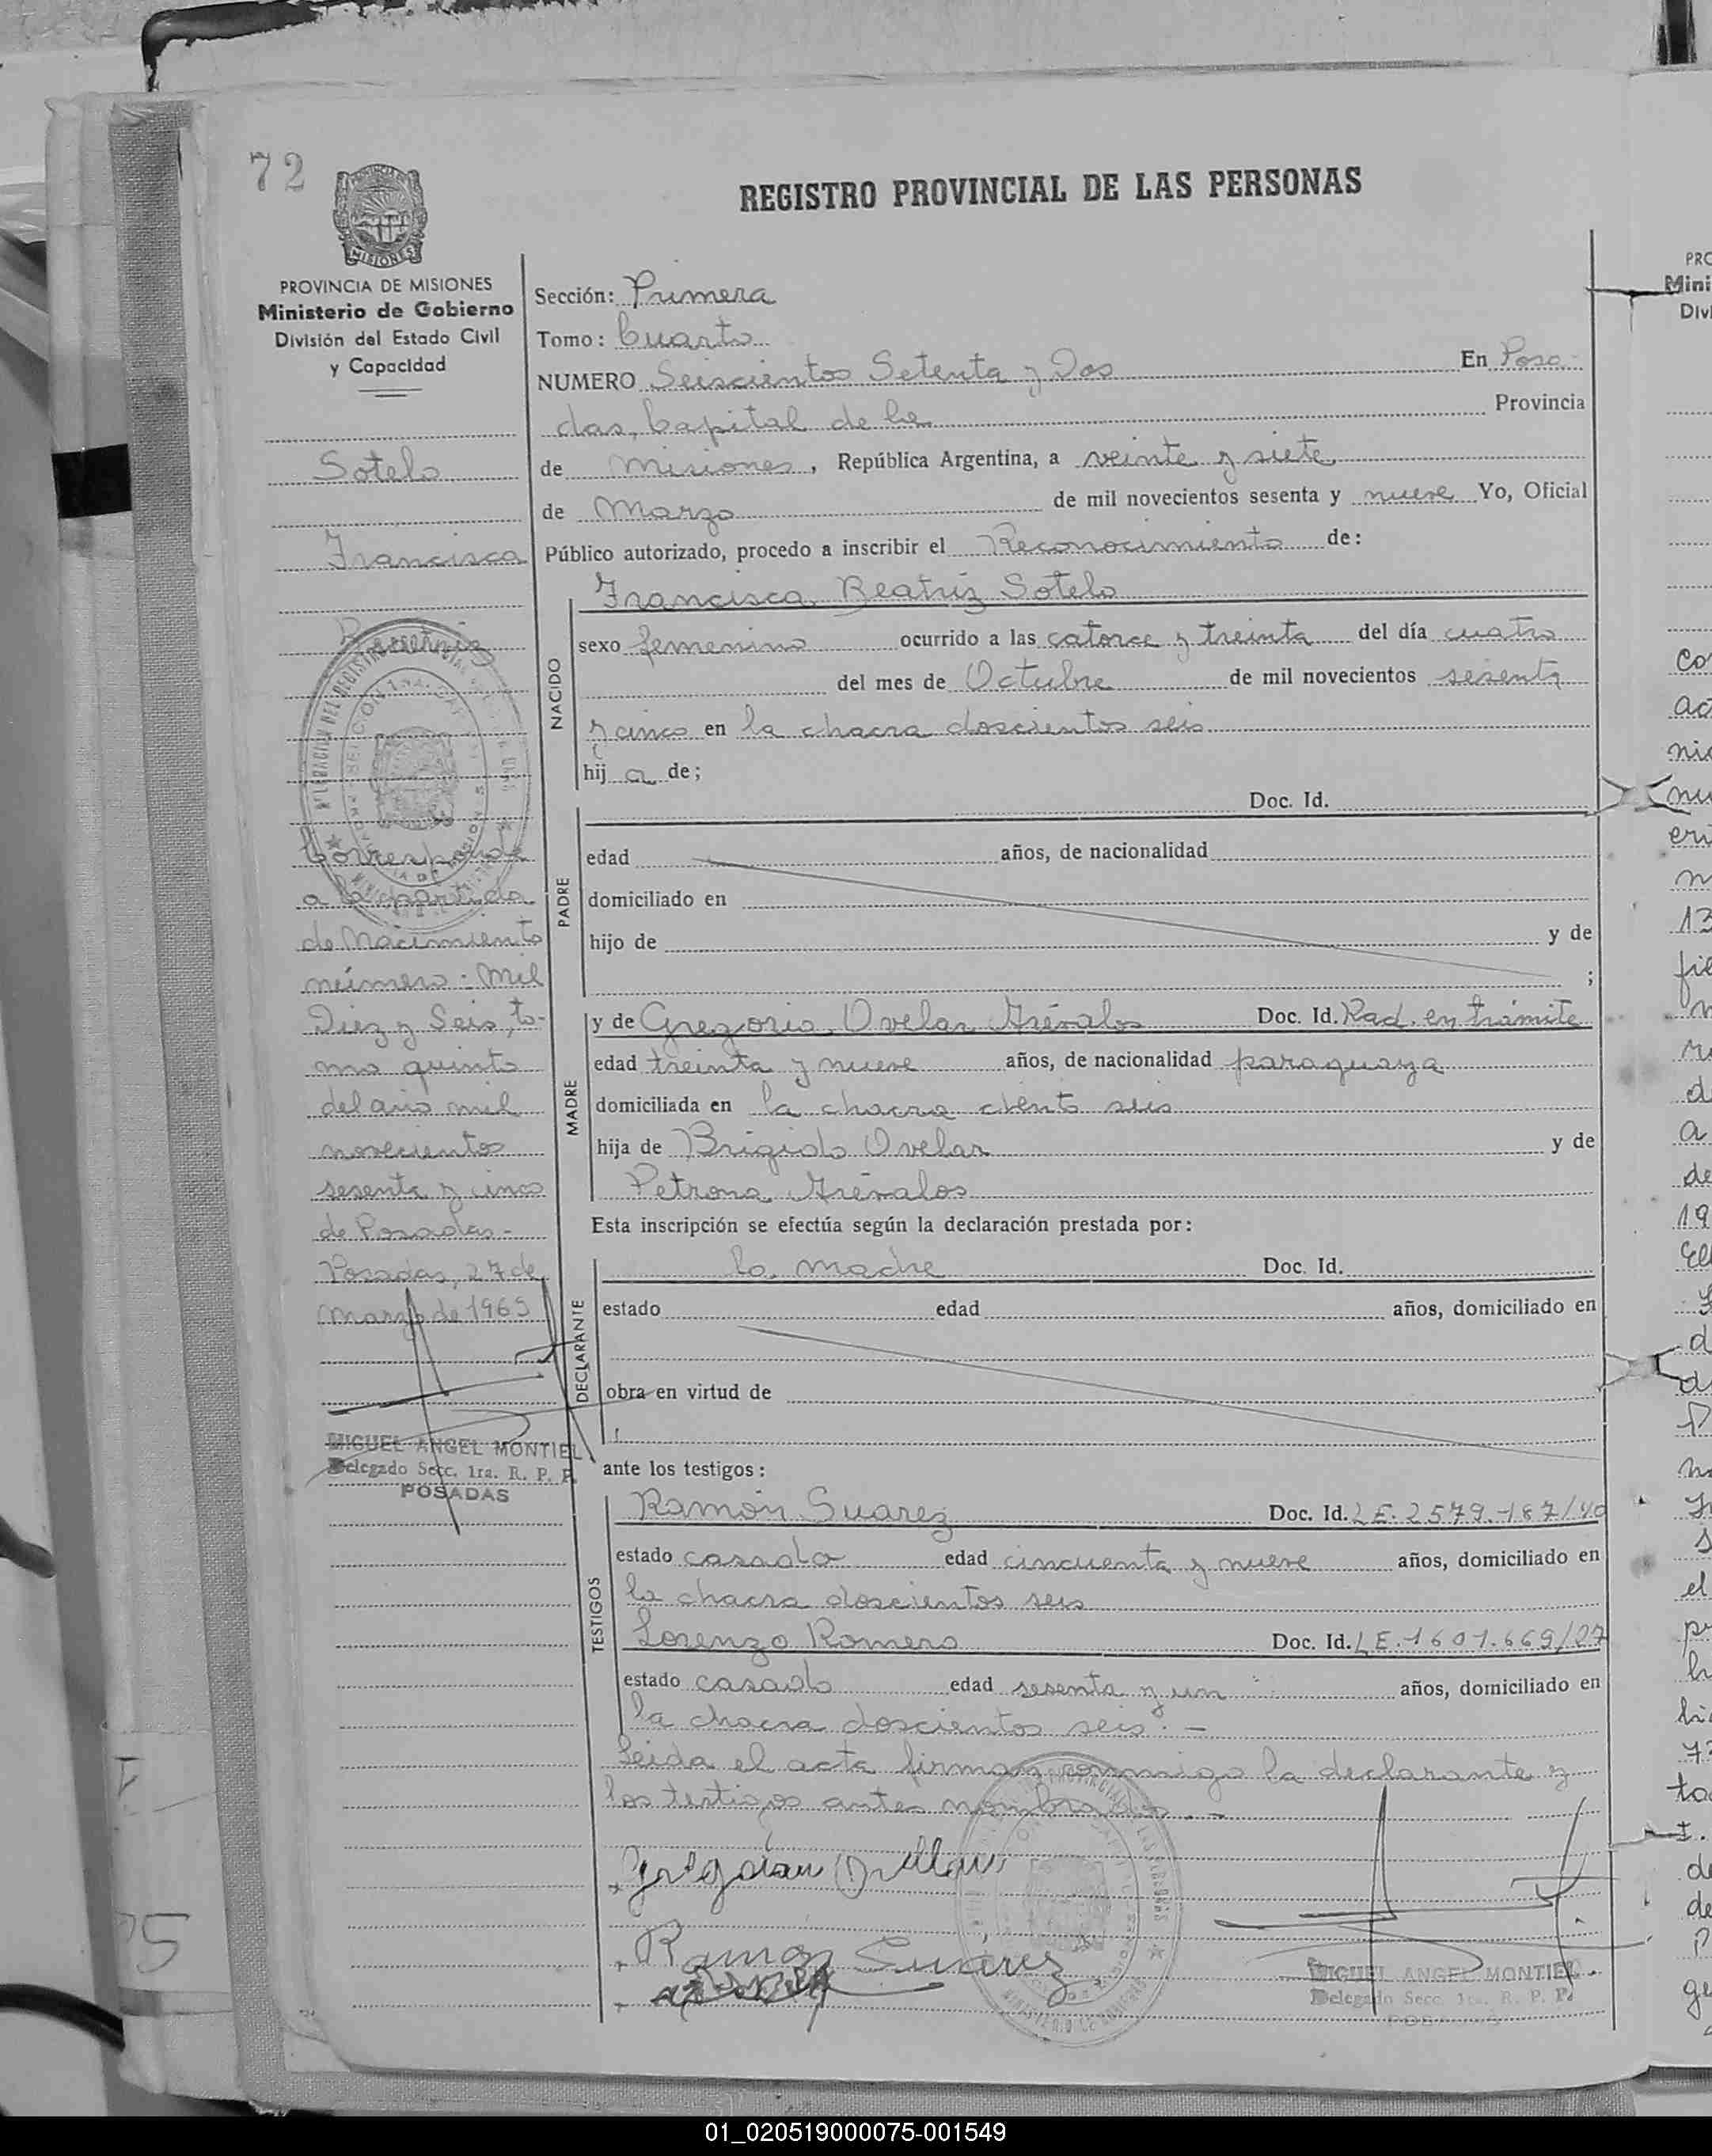 72
REGISTRO PROVINCIAL DE LAS PERSONAS
MISIONES
PROVINCIA DE MISIONES
Ministerio de Gobierno
División del Estado Civil
y Capacidad
Sotelo
Francisca
Beatriz
Corresponde
a la partida
de Nacimiento
número: Mil
Diez y Seis, to-
mo quinto
del año mil
novecientos
sesenta y cinco
de Posadas.-
Posadas, 27 de
Marzo de 1969
MIGUEL ANGEL MONTIEL
Delegado Secc. 1ra. R. P. P.
POSADAS
Sección: Primera
Tomo: Cuarto
NUMERO Seiscientos Setenta y Dos En Posa-
das, Capital de la Provincia
de Misiones, República Argentina, a veinte y siete
de Marzo de mil novecientos sesenta y nueve Yo, Oficial
Público autorizado, procedo a inscribir el Reconocimiento de:
Francisca Beatriz Sotelo
NACIDO
sexo femenino ocurrido a las catorce y treinta del día cuatro
del mes de Octubre de mil novecientos sesenta
y cinco en la chacra doscientos seis
hij a de;
Doc. Id.
PADRE
edad años, de nacionalidad
domiciliado en
hijo de y de
;
MADRE
y de Gregoria Ovelar Arévalos Doc. Id. Rad. en trámite
edad treinta y nueve años, de nacionalidad paraguaya
domiciliada en la chacra ciento seis
hija de Brígido Ovelar y de
Petrona Arévalos
Esta inscripción se efectúa según la declaración prestada por:
DECLARANTE
la madre Doc. Id.
estado edad años, domiciliado en
obra en virtud de
ante los testigos:
TESTIGOS
Ramón Suarez Doc. Id. LE. 2579.187/40
estado casado edad cincuenta y nueve años, domiciliado en
la chacra doscientos seis
Lorenzo Romero Doc. Id. LE.1601.669/27
estado casado edad sesenta y un años, domiciliado en
la chacra doscientos seis.-
Leida el acta firman conmigo la declarante y
los testigos antes nombrados.-
Ramon Suarez
MIGUEL ANGEL MONTIEL
Delegado Secc. 1ra. R. P. P.
POSADAS
01_020519000075-001549